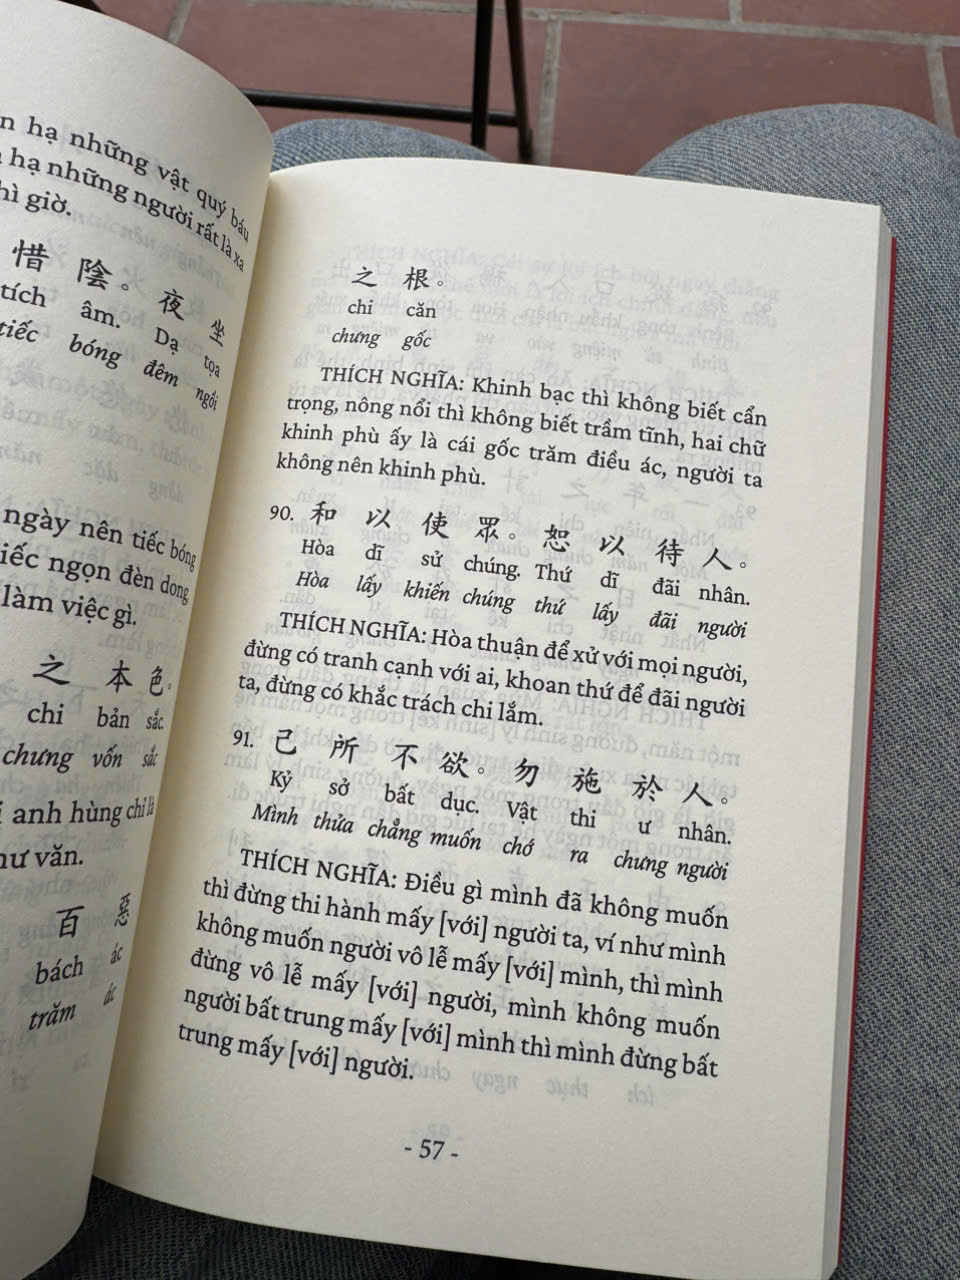 n hạ những vật quý báu
hạ những người rất là xa
hì giờ.
惜 陰。夜 坐
tích âm. Dạ tọa
tiếc bóng đêm ngồi
ngày nên tiếc bóng
iếc ngọn đèn dong
làm việc gì.
之 本 色。
chi bản sắc.
chưng vốn sắc
i anh hùng chỉ là
hư văn.
百 惡
bách ác
trăm ác
之 根。
chi căn
chưng gốc
THÍCH NGHĨA: Khinh bạc thì không biết cẩn
trọng, nông nổi thì không biết trầm tĩnh, hai chữ
khinh phù ấy là cái gốc trăm điều ác, người ta
không nên khinh phù.
90. 和 以 使 眾。恕 以 待 人。
Hòa dĩ sử chúng. Thứ dĩ đãi nhân.
Hòa lấy khiến chúng thứ lấy đãi người
THÍCH NGHĨA: Hòa thuận để xử với mọi người,
đừng có tranh cạnh với ai, khoan thứ để đãi người
ta, đừng có khắc trách chi lắm.
91. 己 所 不 欲。勿 施 於 人。
Kỷ sở bất dục. Vật thi ư nhân.
Mình thửa chẳng muốn chớ ra chưng người
THÍCH NGHĨA: Điều gì mình đã không muốn
thì đừng thi hành mấy [với] người ta, ví như mình
không muốn người vô lễ mấy [với] mình, thì mình
đừng vô lễ mấy [với] người, mình không muốn
người bất trung mấy [với] mình thì mình đừng bất
trung mấy [với] người.
- 57 -